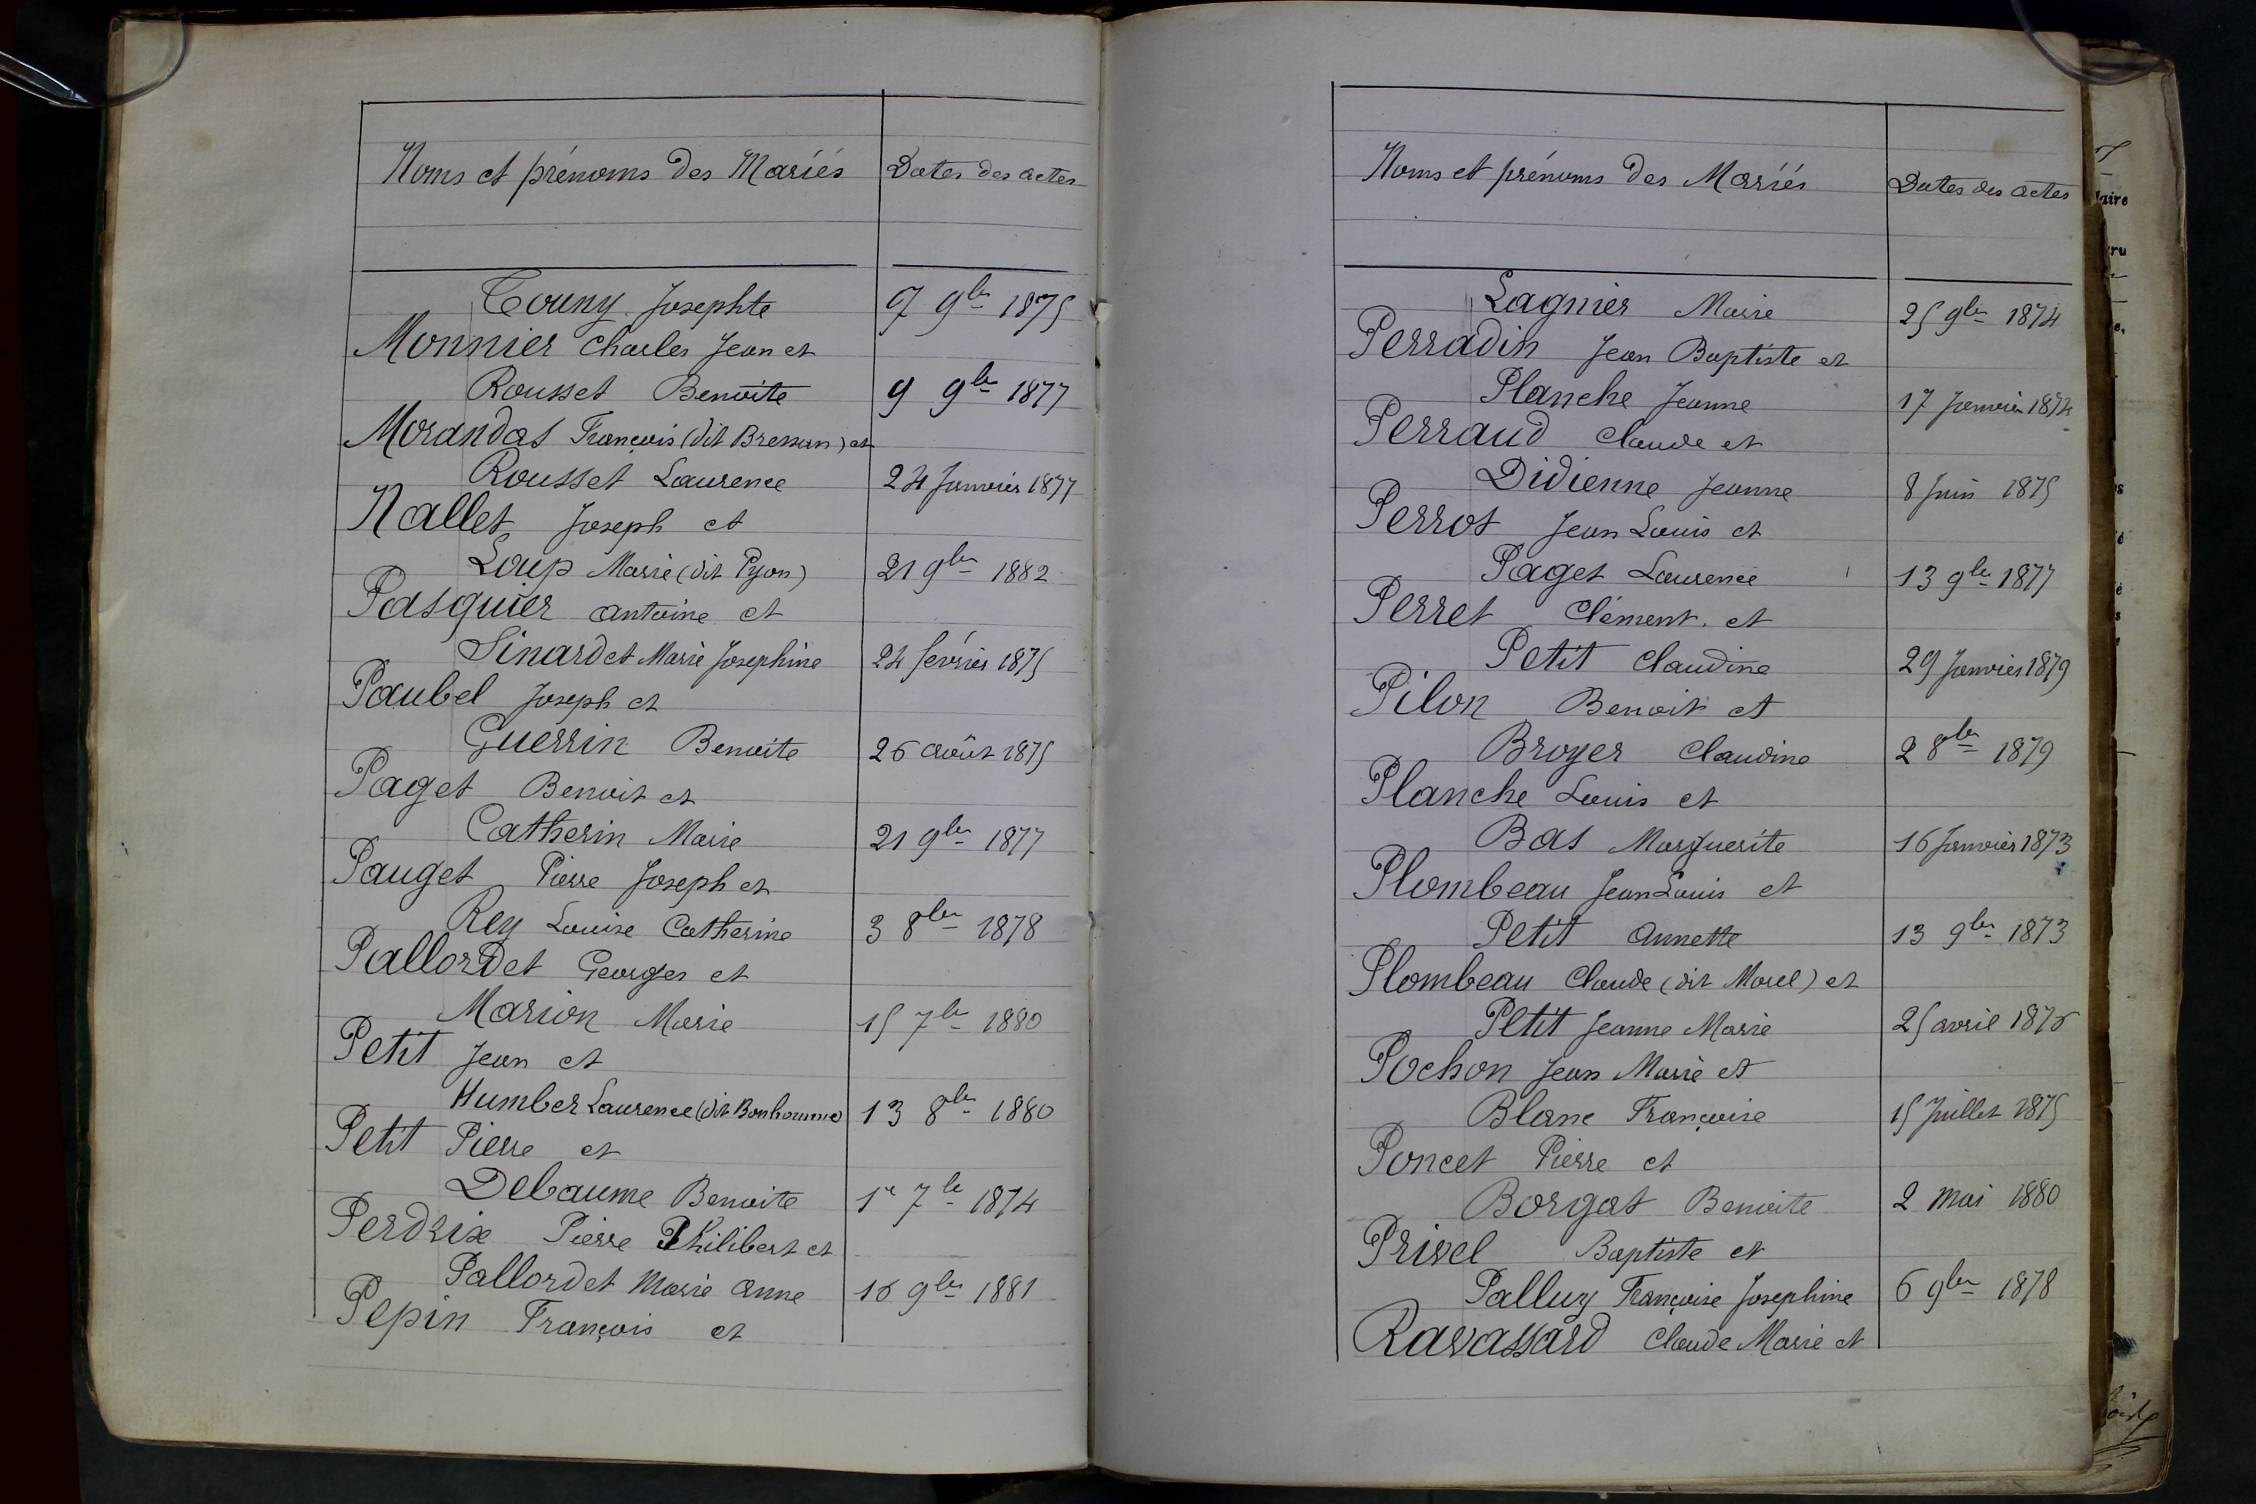 Noms et prénoms des Mariés Dates des actes
Couny Josephte 7 9bre 1875
Monnier Charles Jean et
Rousset Benoite 9 9bre 1877
Morandas François (dit Bressan) et
Rousset Laurence 24 Janvier 1877
Nallet Joseph et
Loup Marie (dit Pyon) 21 9bre 1882
Pasquier antoine et
Sinardet Marie Josephine 24 février 1875
Paubel Joseph et
Guerrin Benoite 26 août 1875
Paget Benoit et
Catherin Marie 21 9bre 1877
Pauget Pierre Joseph et
Rey Louise Catherine 3 8bre 1878
Pallordet Georges et
Marion Marie 15 7bre 1880
Petit Jean et
Humber Laurence (dit Bonhomme) 13 8bre 1880
Petit Pierre et
Debaume Benoite 1er 7bre 1874
Perdrix Pierre Philibert et
Pallordet Marie anne 16 9bre 1881
Pepin François et
Noms et prénoms des Mariés Dates des actes
Lagnier Marie 25 9bre 1874
Perradin Jean Baptiste et
Planche Jeanne 17 Janvier 1874
Perraud Claude et
Didienne Jeanne 8 Juin 1875
Perrot Jean Louis et
Paget Laurence 13 9bre 1877
Perret Clément et
Petit Claudine 29 Janvier 1879
Pilon Benoit et
Broyer Claudine 2 8bre 1879
Planche Louis et
Bas Marguerite 16 Janvier 1873
Plombeau Jean Louis et
Petit annette 13 9bre 1873
Plombeau Claude (dit Morel) et
Petit Jeanne Marie 25 avril 1876
Pochon Jean Marie et
Blanc Françoise 15 Juillet 1875
Poncet Pierre et
Borgat Benoite 2 mai 1880
Privel Baptiste et
Palluy Françoise Josephine 6 9bre 1878
Ravassard Claude Marie et